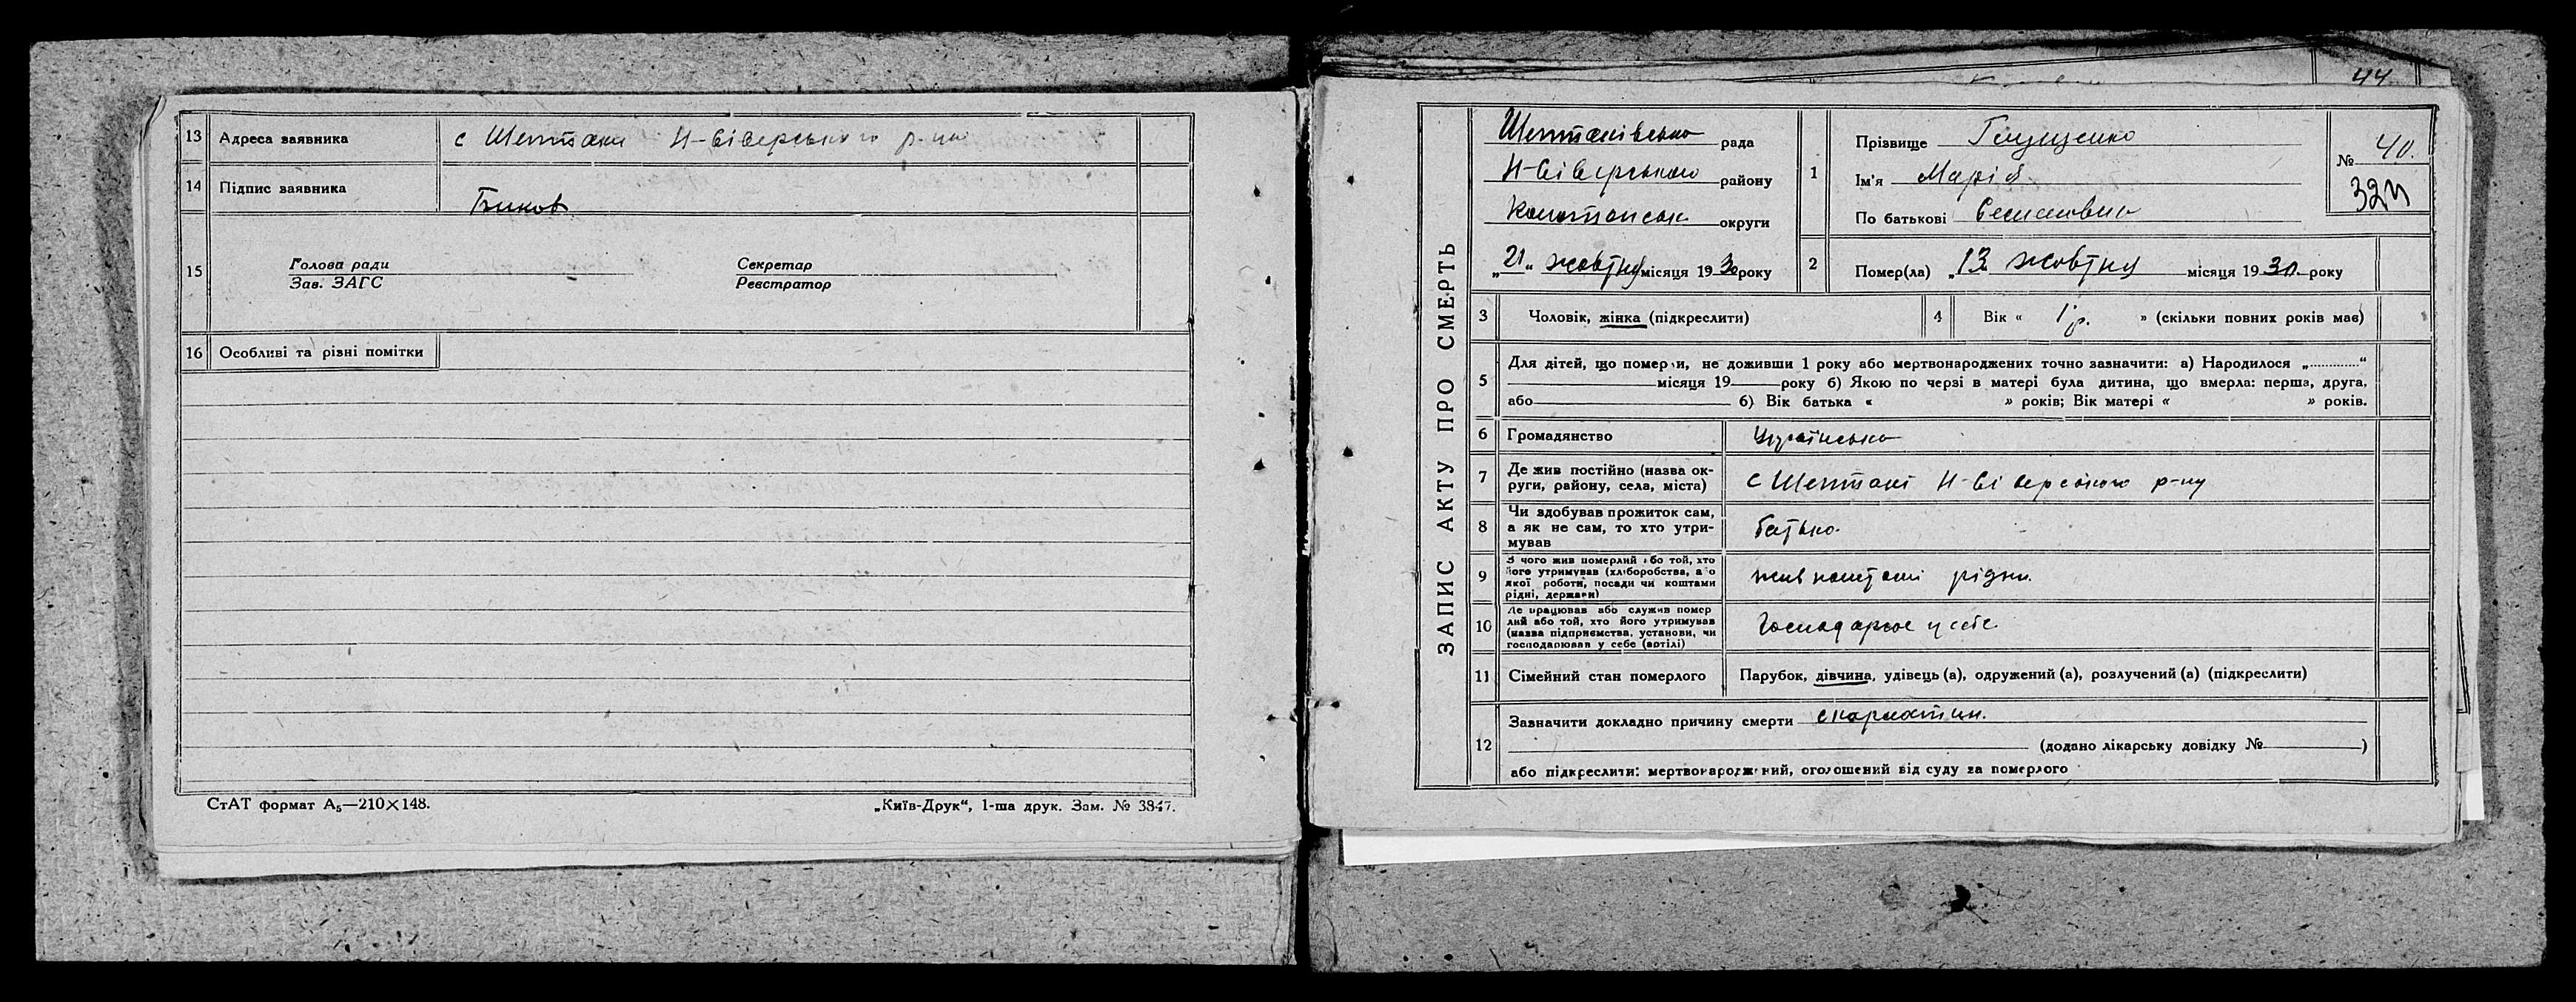 13 Адреса заявника с Шептаки Н-Сіверського р-ну
14 Підпис заявника Биков
15 Голова ради Секретар
Зав. ЗАГС Реєстратор
16 Особливі та різні помітки
СтАТ формат А₅—210×148. „Київ-Друк“, 1-ша друк. Зам. № 3847.
44.
ЗАПИС АКТУ ПРО СМЕРТЬ
Шептаківська рада
Н-Сіверського району
округи
„21“ жовтня місяця 1930 року
1 Прізвище
Ім'я Марія
По батькові Семеновна
№ 40.
324
2 Помер(ла) „13 жовтня місяця 1930 року
3 Чоловік, жінка (підкреслити) 4 Вік « 1 р. » (скільки повних років має)
5 Для дітей, що померли, не доживши 1 року або мертвонароджених точно зазначити: а) Народилося „ “
місяця 19 року б) Якою по черзі в матері була дитина, що вмерла: перша, друга,
або б) Вік батька « » років; Вік матері « » років.
6 Громадянство Українська
7 Де жив постійно (назва ок-
руги, району, села, міста) с Шептакі Н-Сіверського р-ну
8 Чи здобував прожиток сам,
а як не сам, то хто утри-
мував батько.
9 З чого жив померлий або той, хто
його утримував (хліборобства, або
якої роботи, посади чи коштами
рідні, держави) жив коштами рідни.
10 Де працював або служив помер
лий або той, хто його утримував
(назва підприємства, установи, чи
господарював у себе (артілі) Господарює у себе.
11 Сімейний стан померлого Парубок, дівчина, удівець (а), одружений (а), розлучений (а) (підкреслити)
12 Зазначити докладно причину смерти скарлатин.
(додано лікарську довідку № )
або підкреслити: мертвонароджений, оголошений від суду за померлого